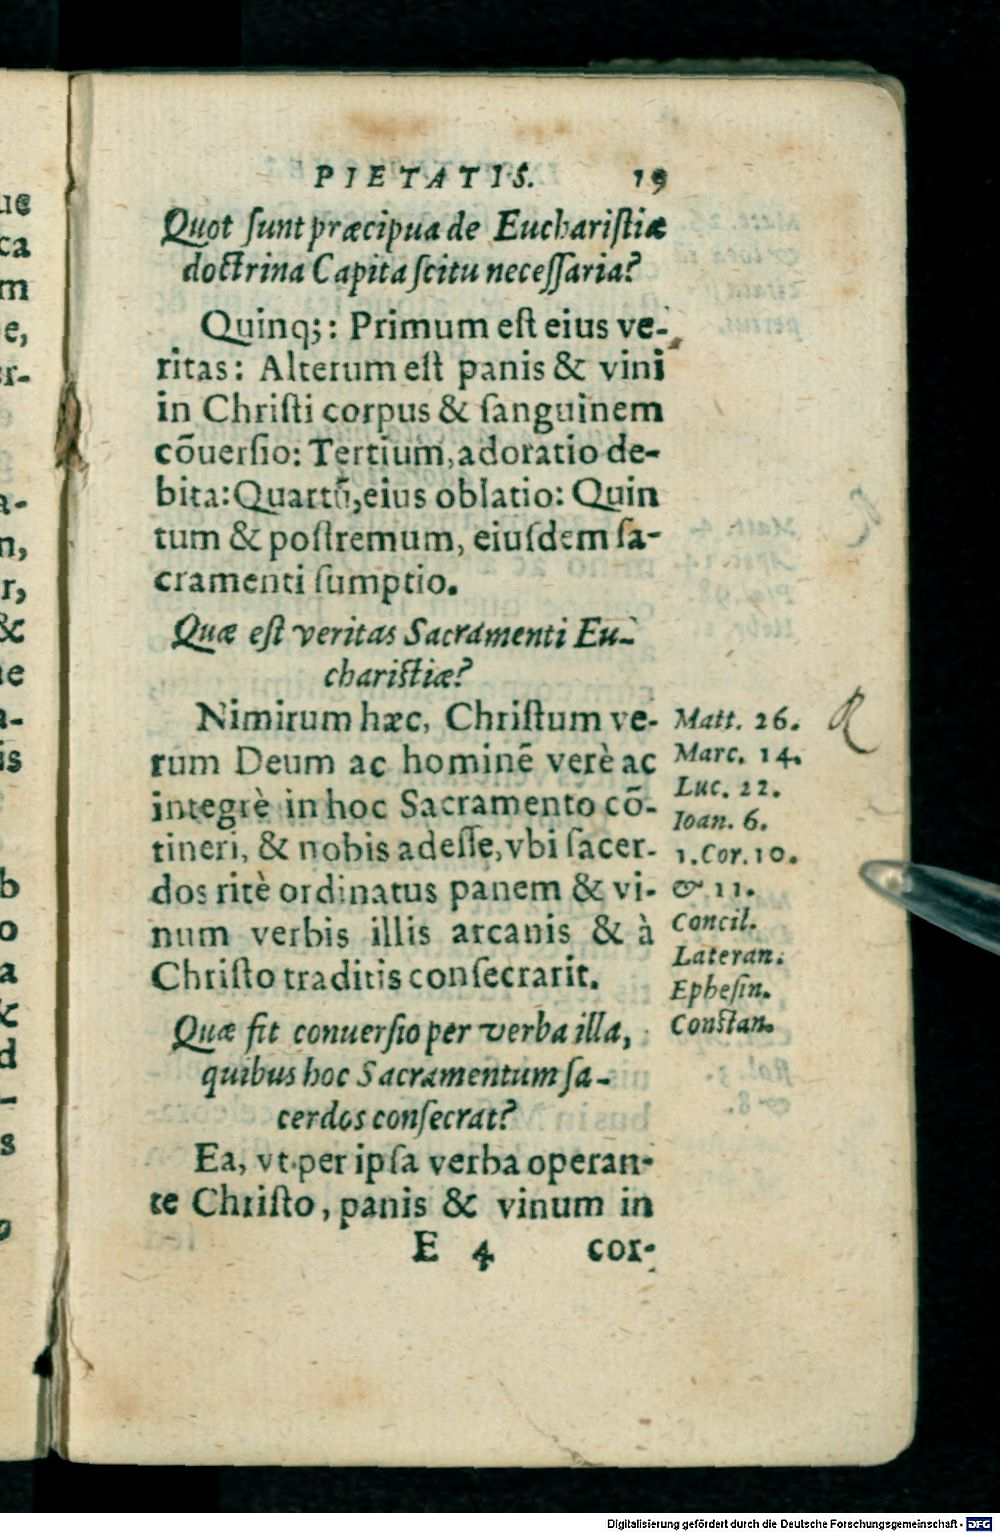 PIETATIS. 19
Quot ſunt præcipua de Euchariſtiæ
doctrina Capita ſcitu neceſſaria?
Quinq;: Primum eſt eius ve-
ritas: Alterum eſt panis & vini
in Chriſti corpus & ſanguinem
cōuerſio: Tertium, adoratio de-
bita: Quartũ, eius oblatio: Quin
tum & poſtremum, eiuſdem ſa-
cramenti ſumptio.
Quæ eſt veritas Sacramenti Eu-
chariſtiæ?
Nimirum hæc, Chriſtum ve-
rum Deum ac hominẽ verè ac
integrè in hoc Sacramento cō-
tineri, & nobis adeſſe, vbi ſacer-
dos ritè ordinatus panem & vi-
num verbis illis arcanis & à
Chriſto traditis conſecrarit.
Matt. 26.
Marc. 14.
Luc. 22.
Ioan. 6.
1. Cor. 10.
& 11.
Concil.
Lateran.
Epheſin.
Conſtan.
Quæ fit conuerſio per verba illa,
quibus hoc Sacramentum ſa-
cerdos conſecrat?
Ea, vt per ipſa verba operan-
te Chriſto, panis & vinum in
E 4 cor-
Digitalisierung gefördert durch die Deutsche Forschungsgemeinschaft - DFG